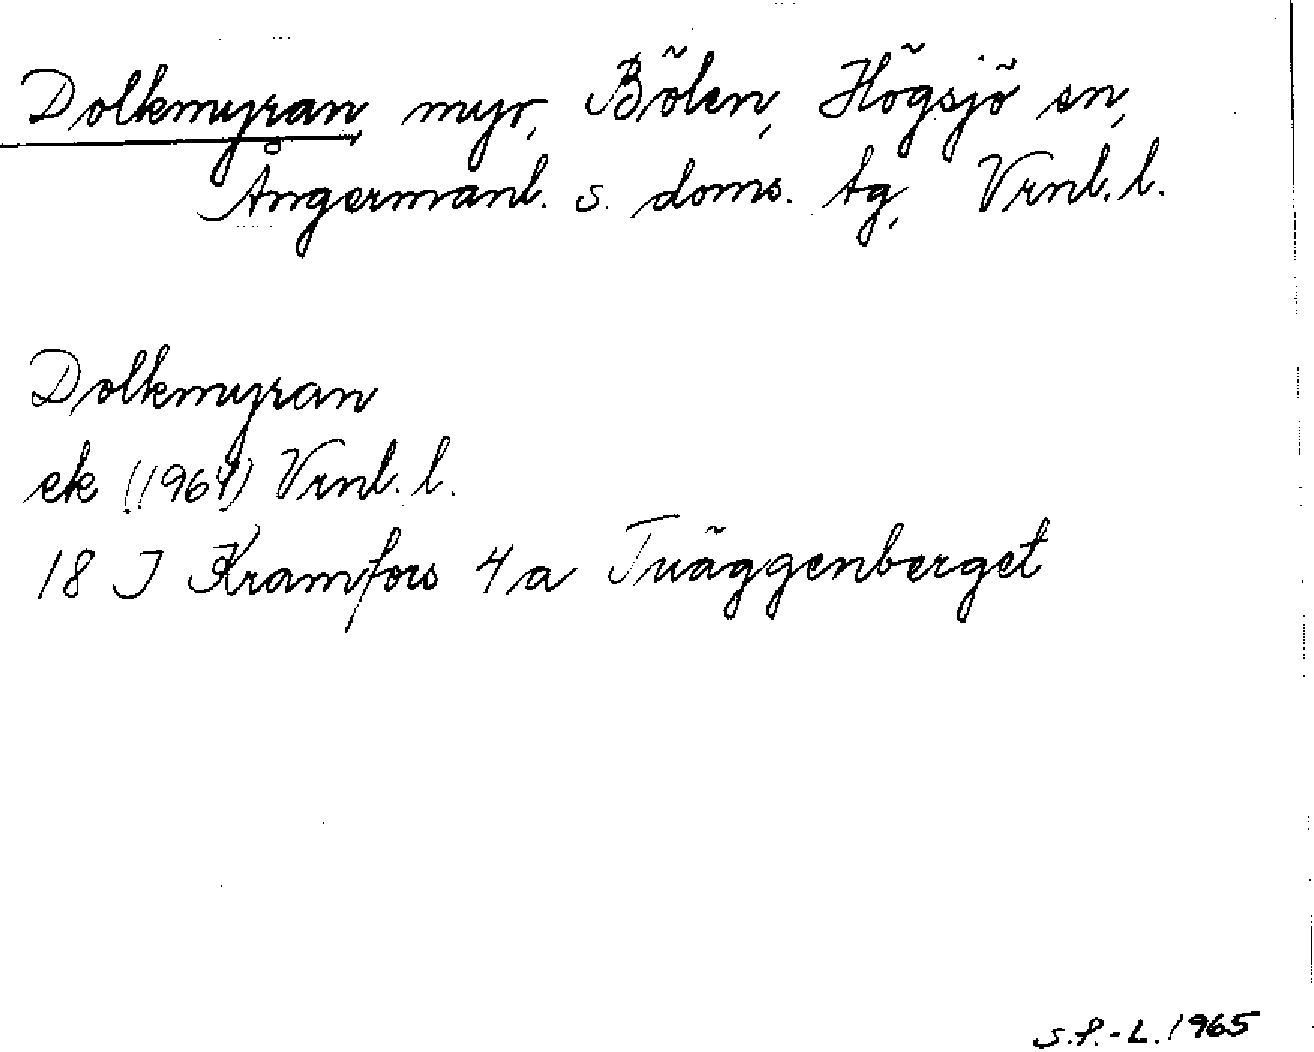 Dolkmyran, myr, Bölen, Högsjö sn,
Ångermanl. s. doms. tg, Vrnl. l.
Dolkmyran
ek (1964) Vrnl. l.
18 I Kramfors 4 a Tväggenberget
S.P.-L. 1965